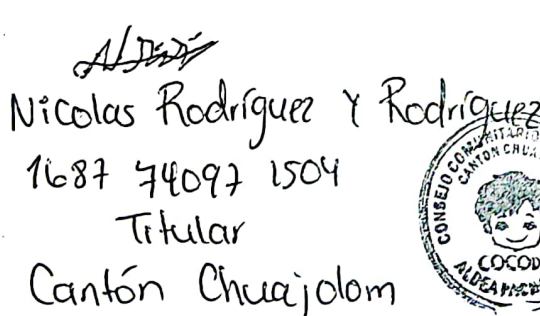 Nicolas Rodríguez Y Rodríguez
1687 74097 1504
Titular
Cantón Chuajolom
CONSEJO COMUNITARIO
CANTON
COCOD
ALDEA